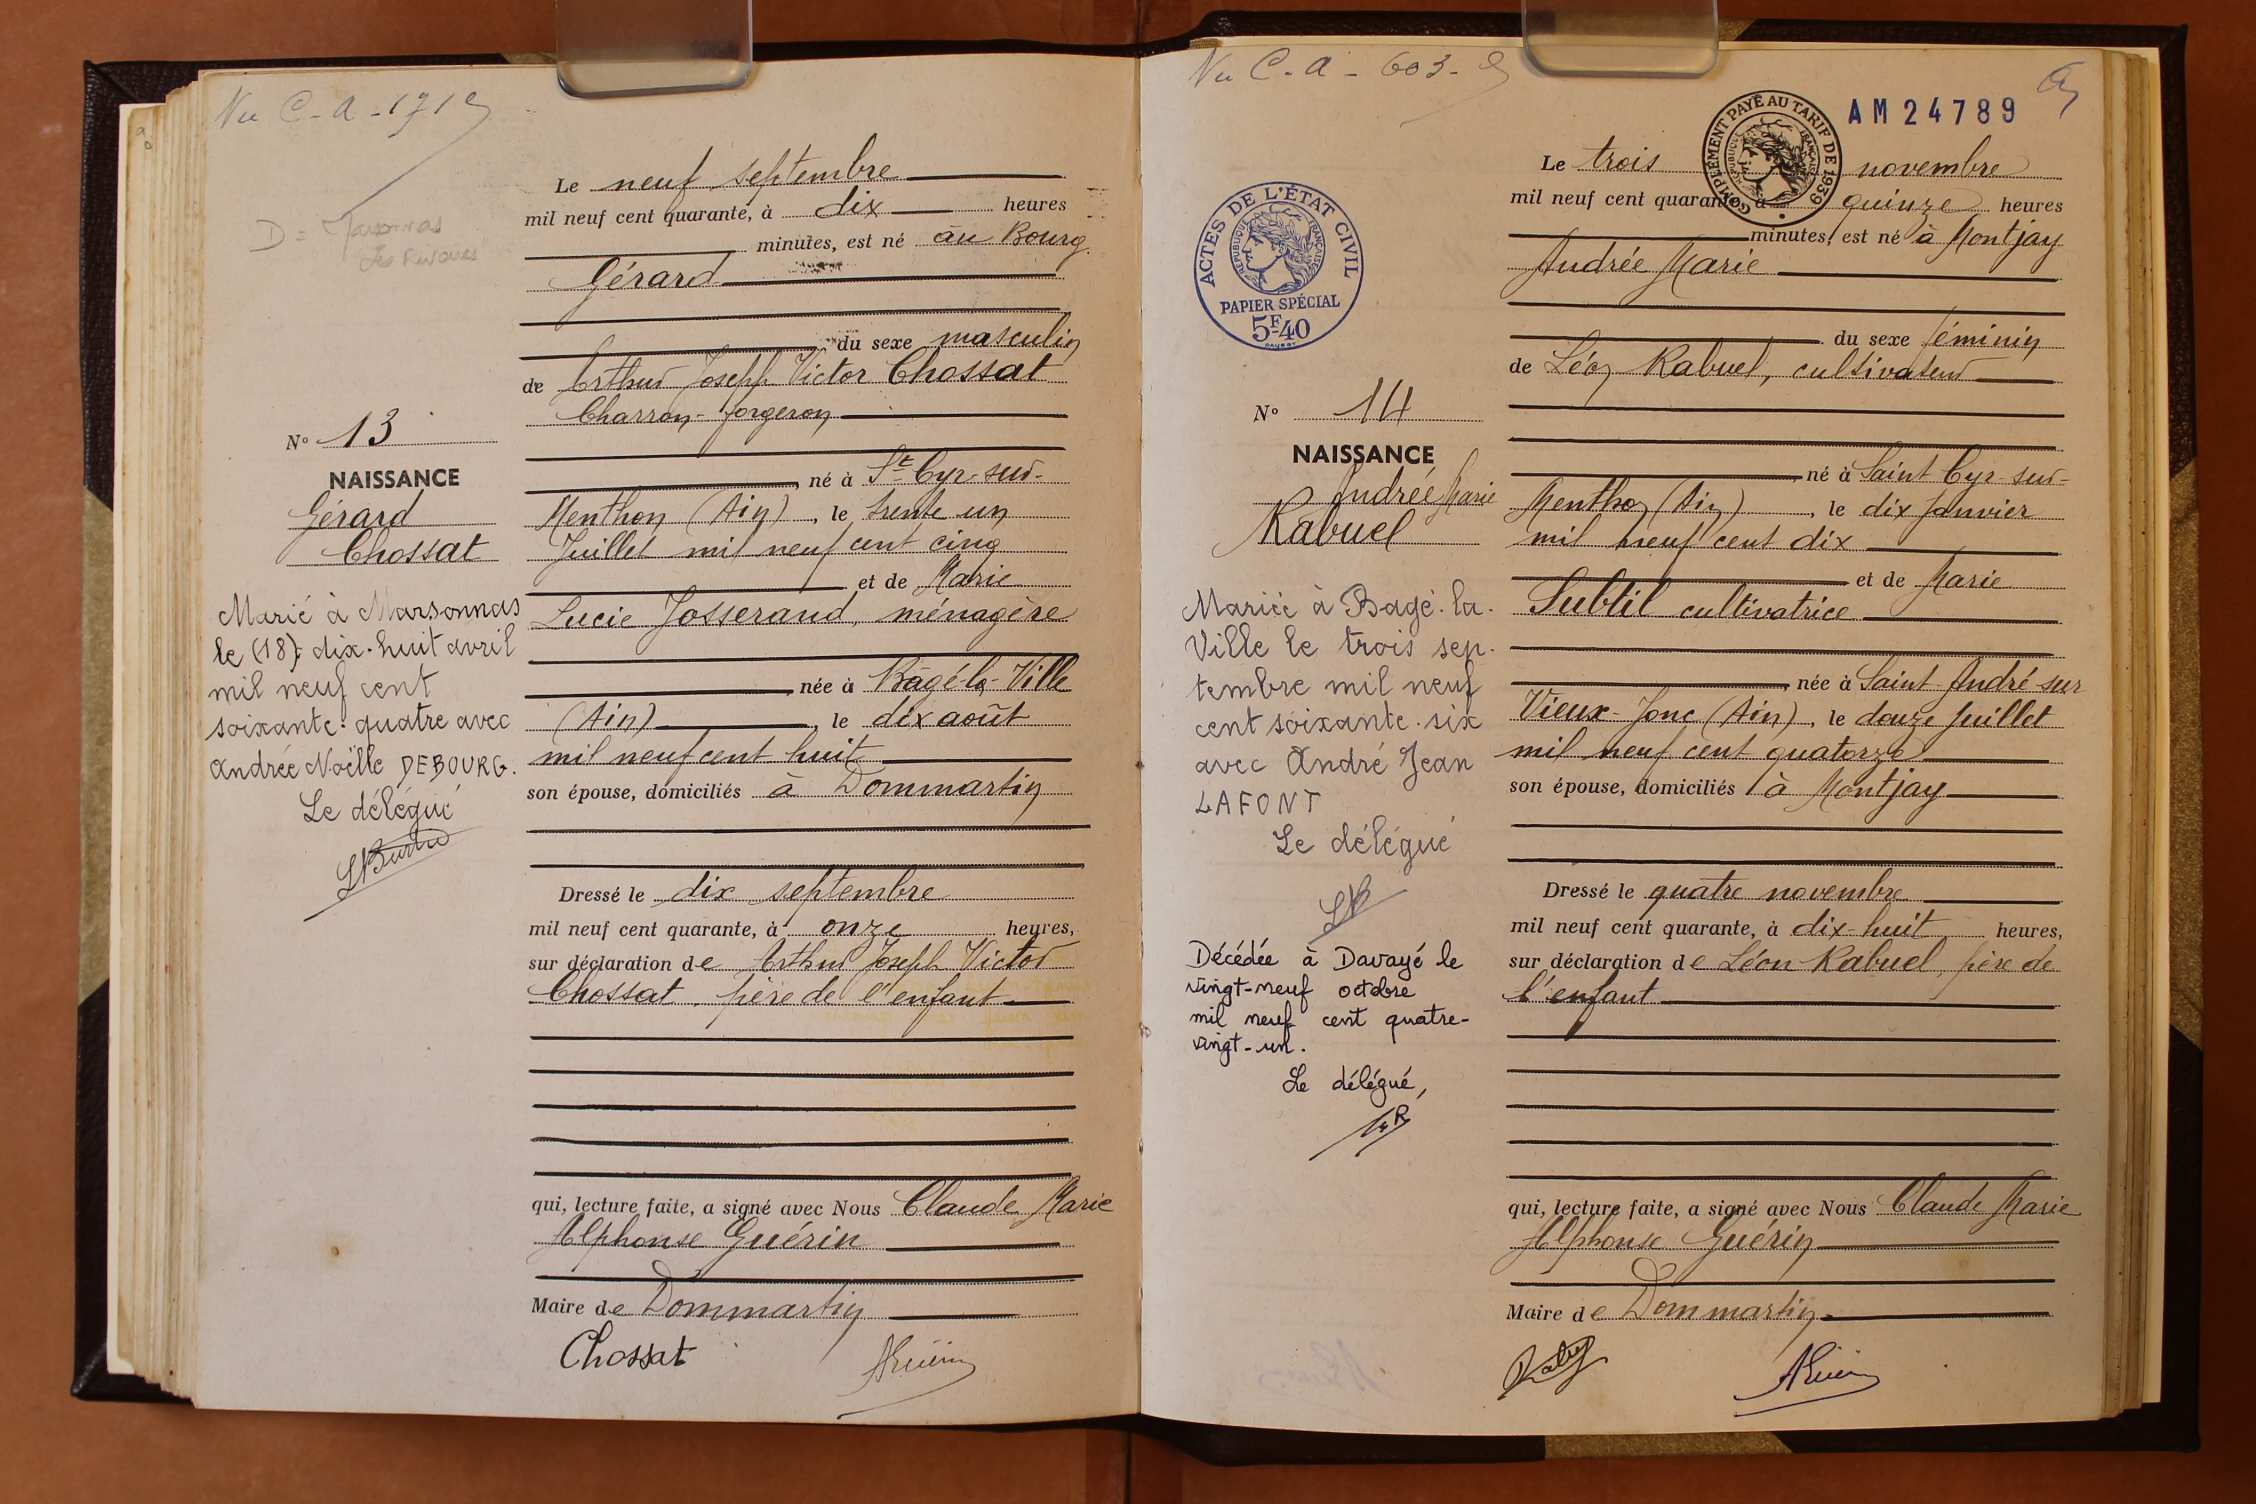 Vu C-A-171
D = Marsonnas
Le neuf septembre
mil neuf cent quarante, à dix heures
minutes, est né au Bourg
Gérard
du sexe masculin
de Arthur Joseph Victor Chossat
Charron-forgeron
né à St Cyr-sur-
Menthon (Ain), le trente un
Juillet mil neuf cent cinq
et de Marie
Lucie Josserand, ménagère
née à Bâgé-la-Ville
(Ain), le dix août
mil neuf cent huit
son épouse, domiciliés à Dommartin
Dressé le dix septembre
mil neuf cent quarante, à onze heures,
sur déclaration de Arthur Joseph Victor
Chossat, père de l'enfant
qui, lecture faite, a signé avec Nous Claude Marie
Alphonse Guérin
Maire de Dommartin
Chossat
AGuérin
No 13
NAISSANCE
Gérard
Chossat
Marié à Marsonnas
le (18) dix-huit avril
mil neuf cent
soixante-quatre avec
Andrée Noëlle DEBOURG.
Le délégué
Vu C-A-603-
AM24789
COMPLÉMENT PAYÉ AU TARIF DE 1939
RÉPUBLIQUE FRANÇAISE
Le trois novembre
mil neuf cent quarante, à quinze heures
minutes, est né à Montjay
Andrée Marie
du sexe féminin
de Léon Rabuel, cultivateur
né à Saint Cyr-sur-
Menthon (Ain), le dix Janvier
mil neuf cent dix
et de Marie
Subtil cultivatrice
née à Saint-André-sur
Vieux-Jonc (Ain), le douze Juillet
mil neuf cent quatorze
son épouse, domiciliés à Montjay
Dressé le quatre novembre
mil neuf cent quarante, à dix-huit heures,
sur déclaration de Léon Rabuel, père de
l'enfant
qui, lecture faite, a signé avec Nous Claude Marie
Alphonse Guérin
Maire de Dommartin
Rabuel
AGuérin
ACTES DE L'ÉTAT CIVIL
RÉPUBLIQUE FRANÇAISE
PAPIER SPÉCIAL
5F40
No 14
NAISSANCE
Andrée Marie
Rabuel
Mariée à Bagé-la-
Ville le trois sep-
tembre mil neuf
cent soixante-six
avec André Jean
LAFONT
Le délégué
Décédée à Davayé le
vingt-neuf octobre
mil neuf cent quatre-
vingt-un.
Le délégué,